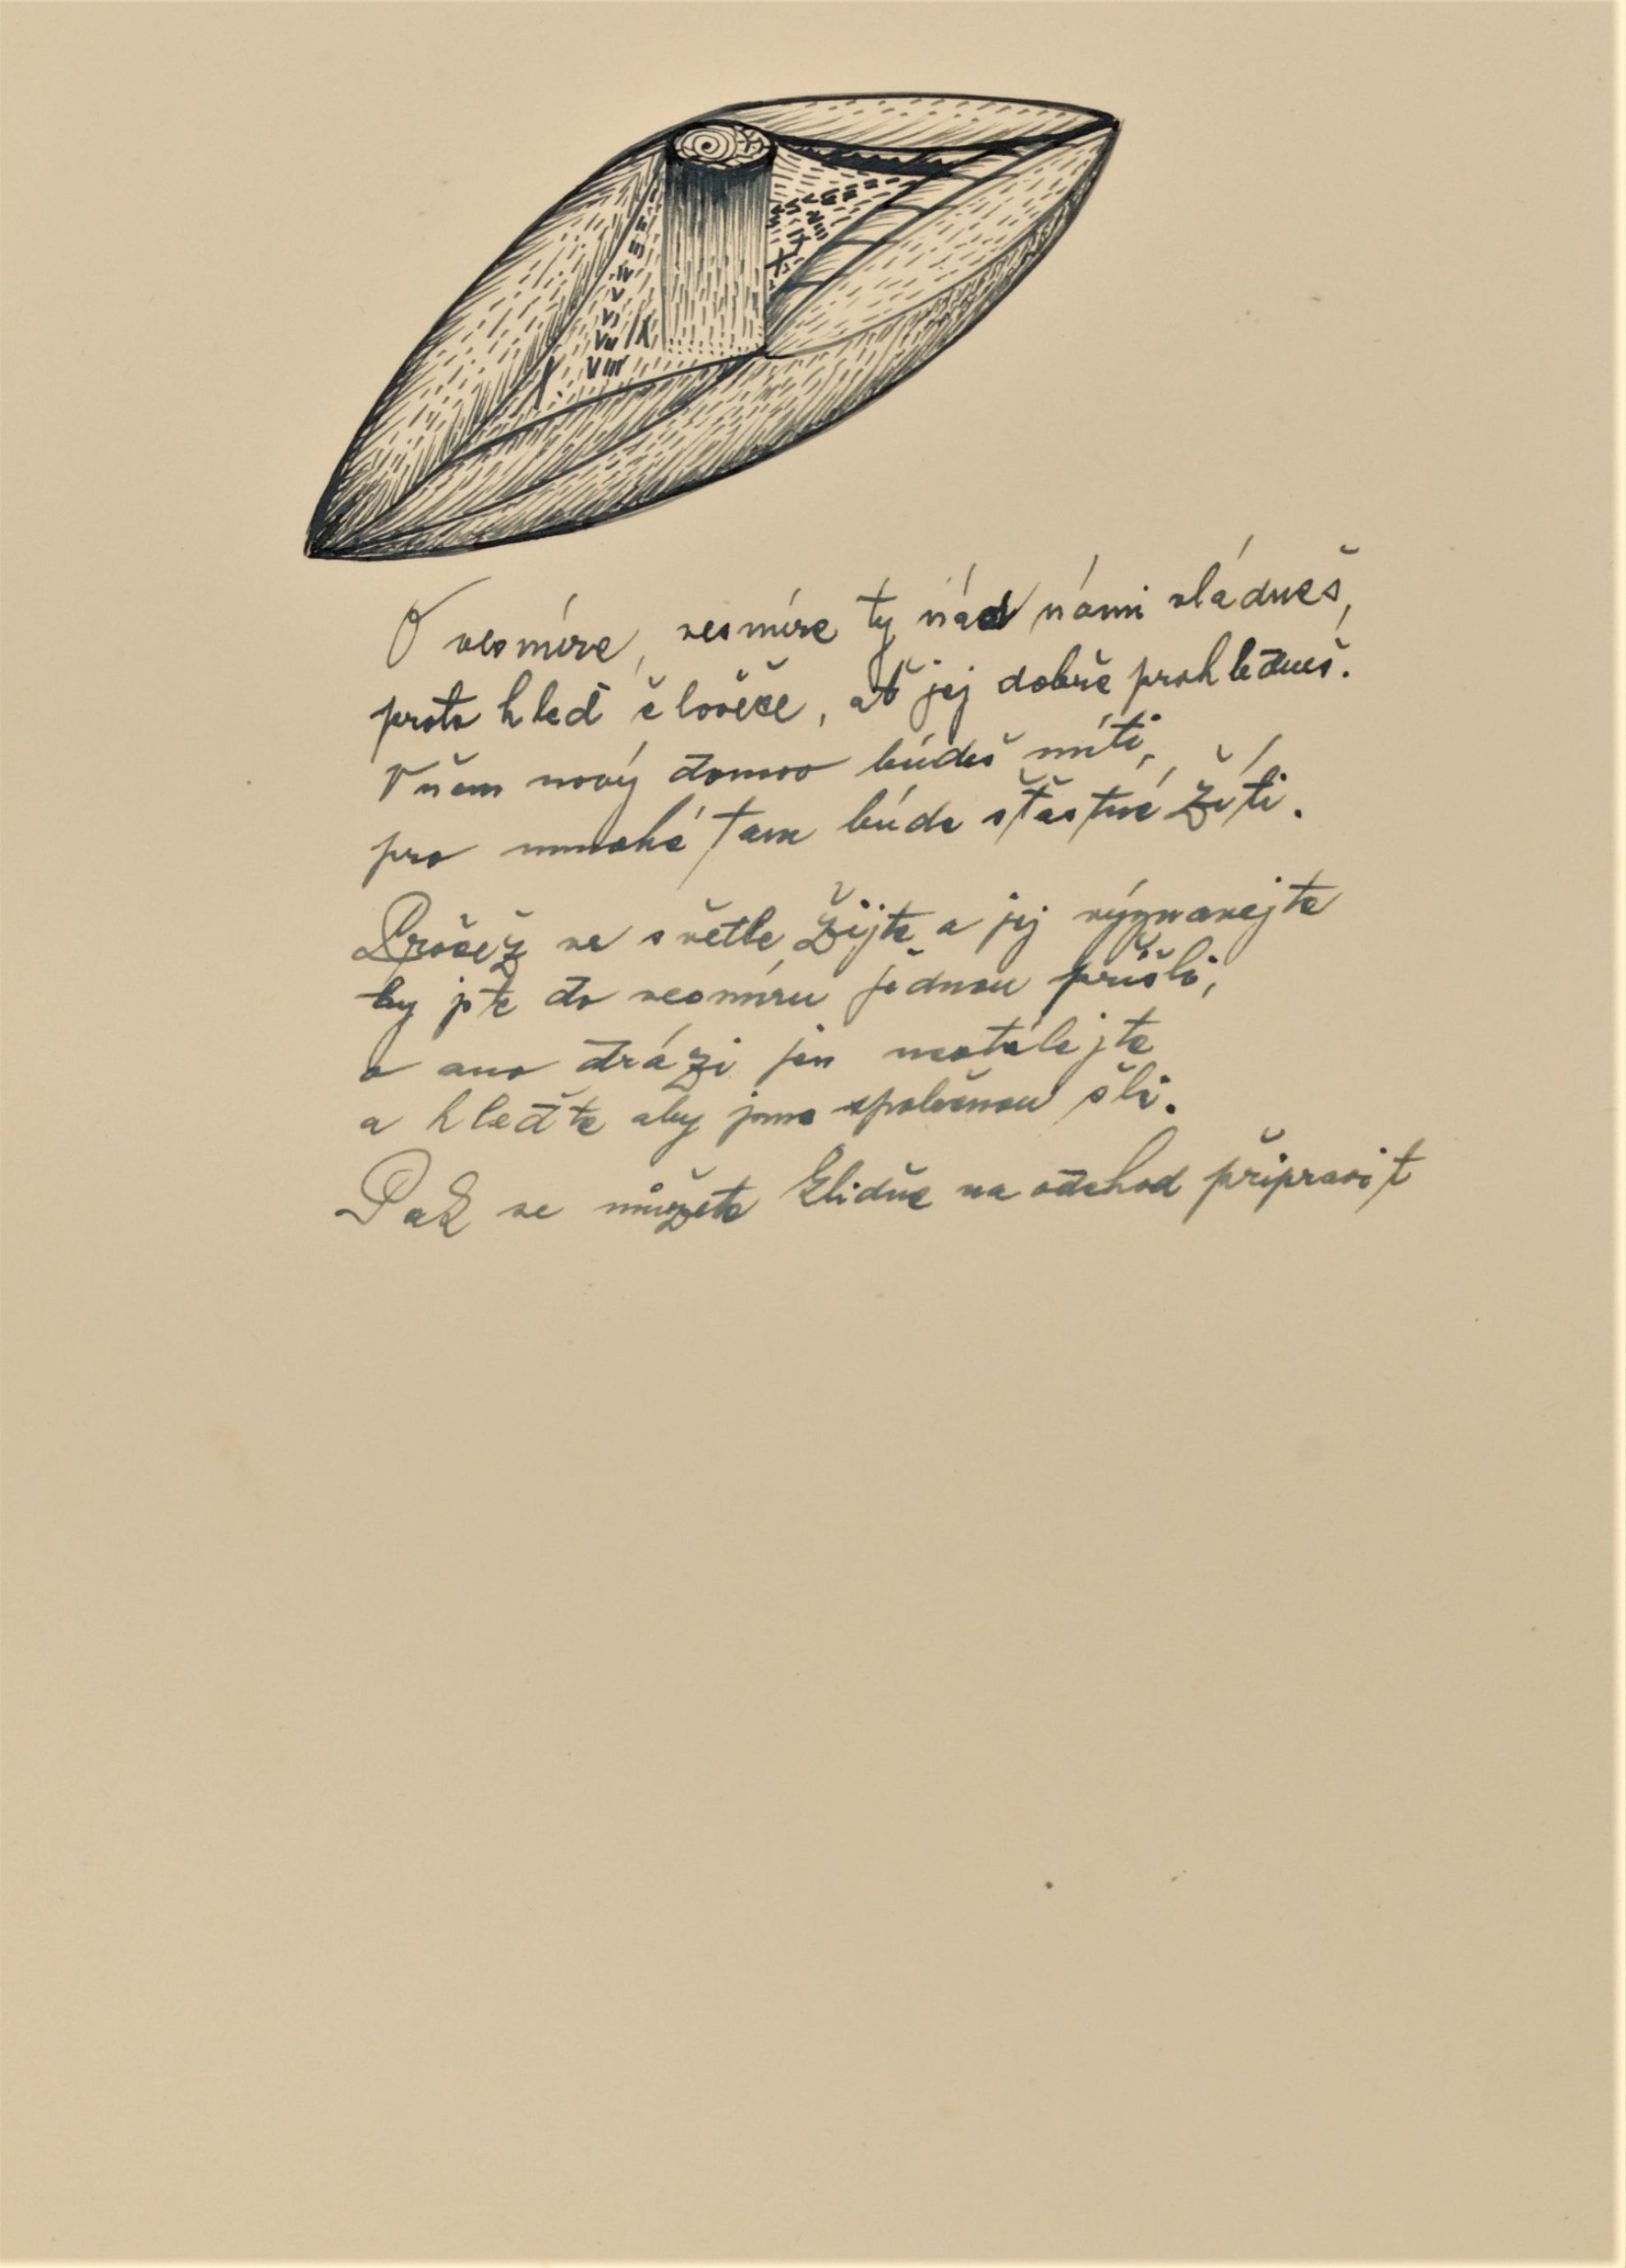 I
II
III
IV
V
VI
VII
VIII
X
XI
O vesmíre, vesmíre ty nád námi vládneš,
proto hleď človéče, ať jej dobře prohlédneš.
V ňem nový domov búdeš míti,
pro mnohé tam búde šťastné žíti.
Pročež ve světle žijte a jej význavejte
by jste do vesmíru jednou příšli,
a ano drázi jen neotálejte
a hleďte aby jsme společnou šli.
Pak se můžete klidňe na odchod připravit